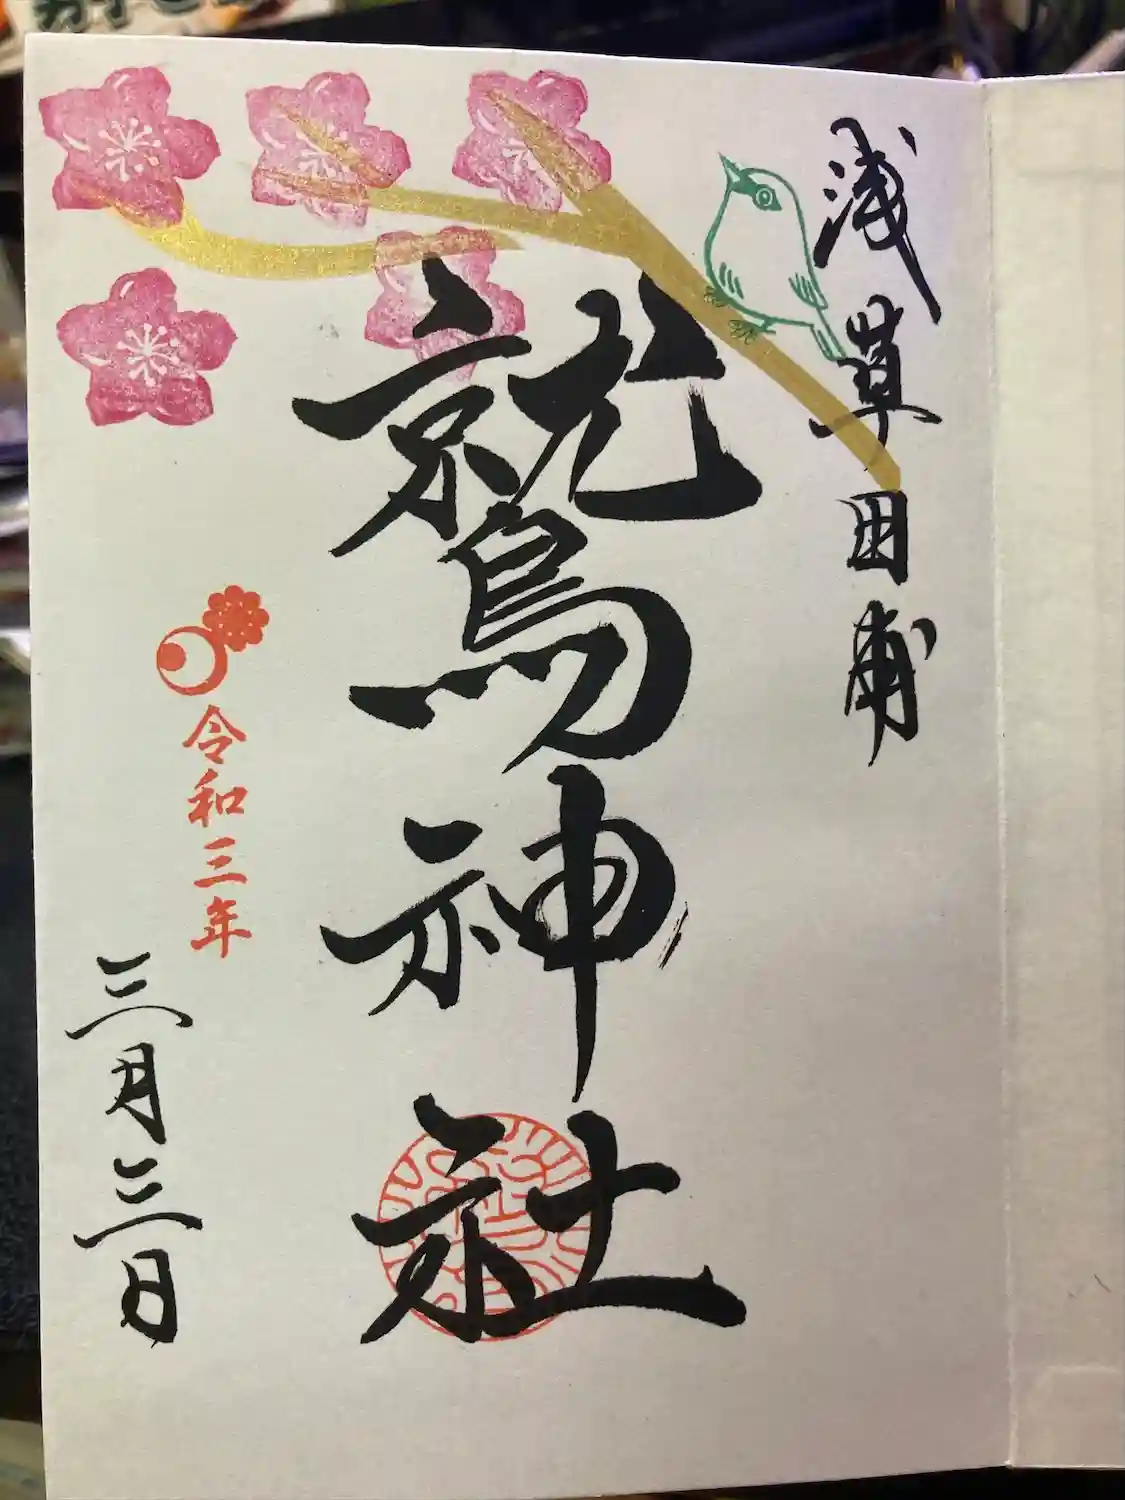 浅草田甫
鷲神社
令和三年
三月三日